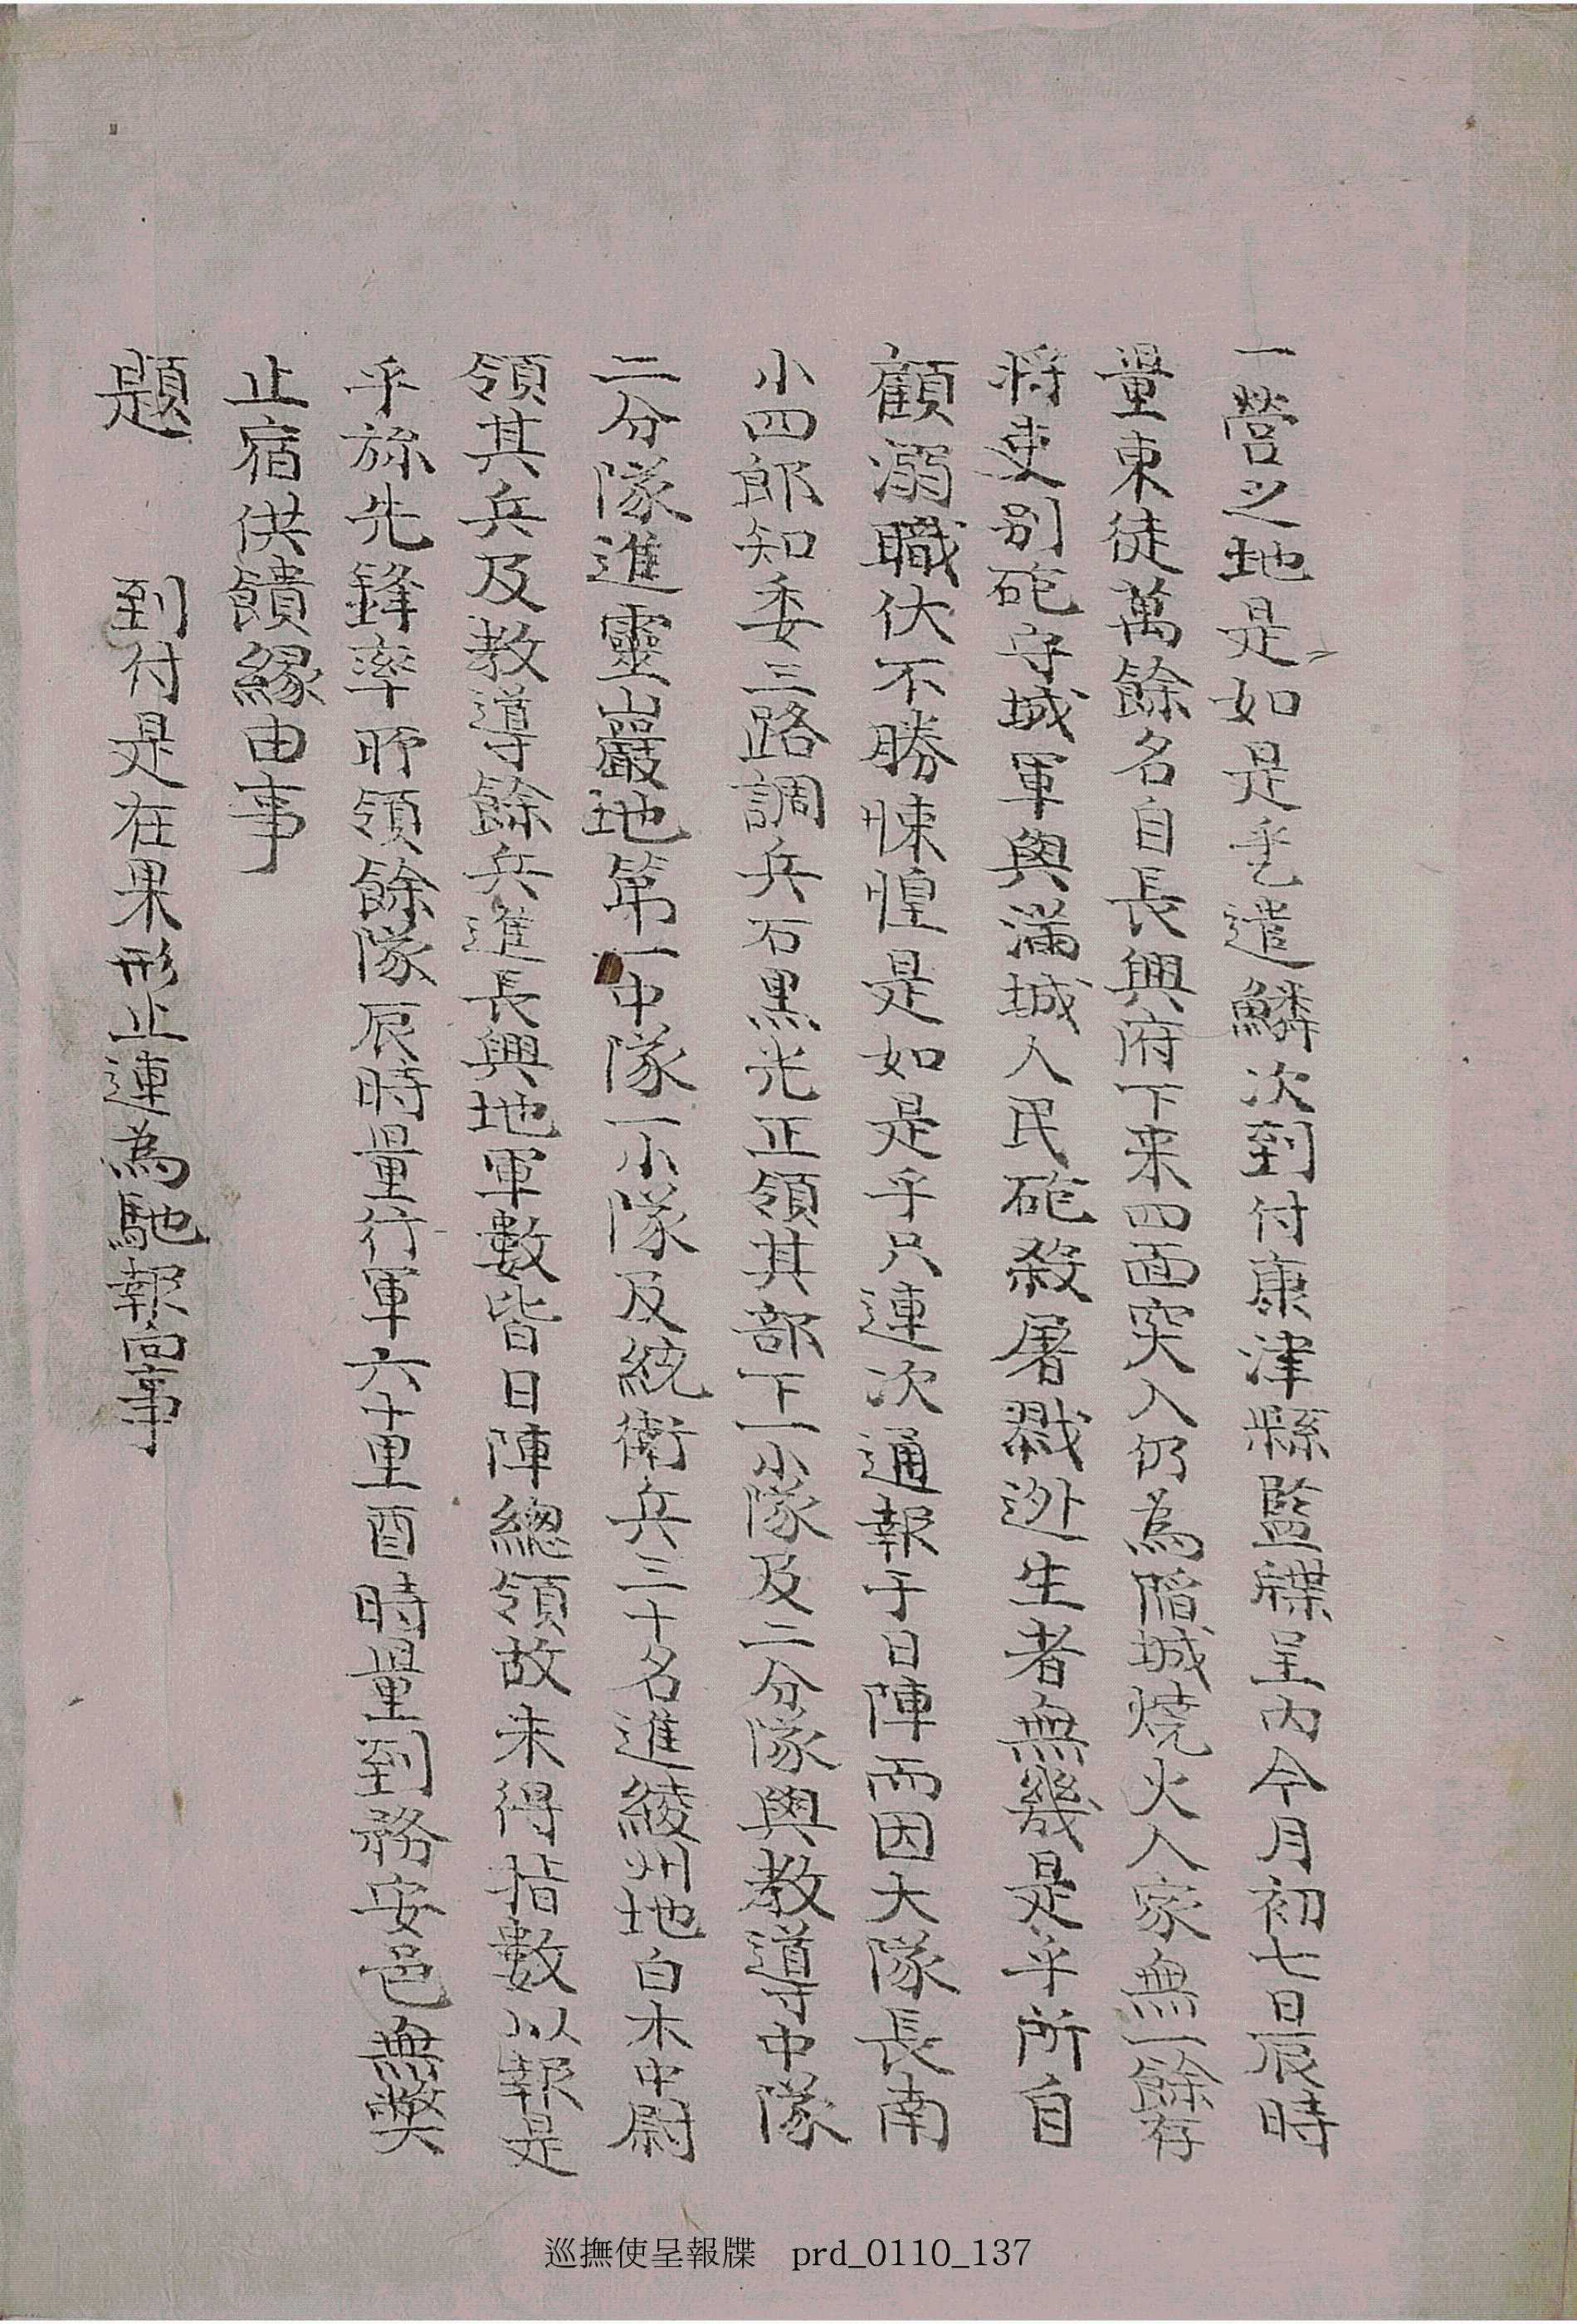 一營之地是如是乎乙遣鱗次到付康津縣監牒呈內今月初七日辰時
量東徒萬餘名自長興府下来四面突入仍為陷城燒火人家無一餘存
將吏別砲守城軍與滿城人民砲殺屠戮逃生者無幾是乎所自
顧溺職伏不勝悚惶是如是乎只連次通報于日陣而因大隊長南
小四郎知委三路調兵石黑光正領其部下一小隊及二分隊與教導中隊
二分隊進靈巖地第一中隊一小隊及統衛兵三十名進綾州地白木中尉
領其兵及教導餘兵進長興地軍數皆日陣總領故未得指數以報是
乎旀先鋒率所領餘隊辰時量行軍六十里酉時量到務安邑無弊
止宿供饋緣由事
題 到付是在果形止連為馳報向事
巡撫使呈報牒 prd_0110_137